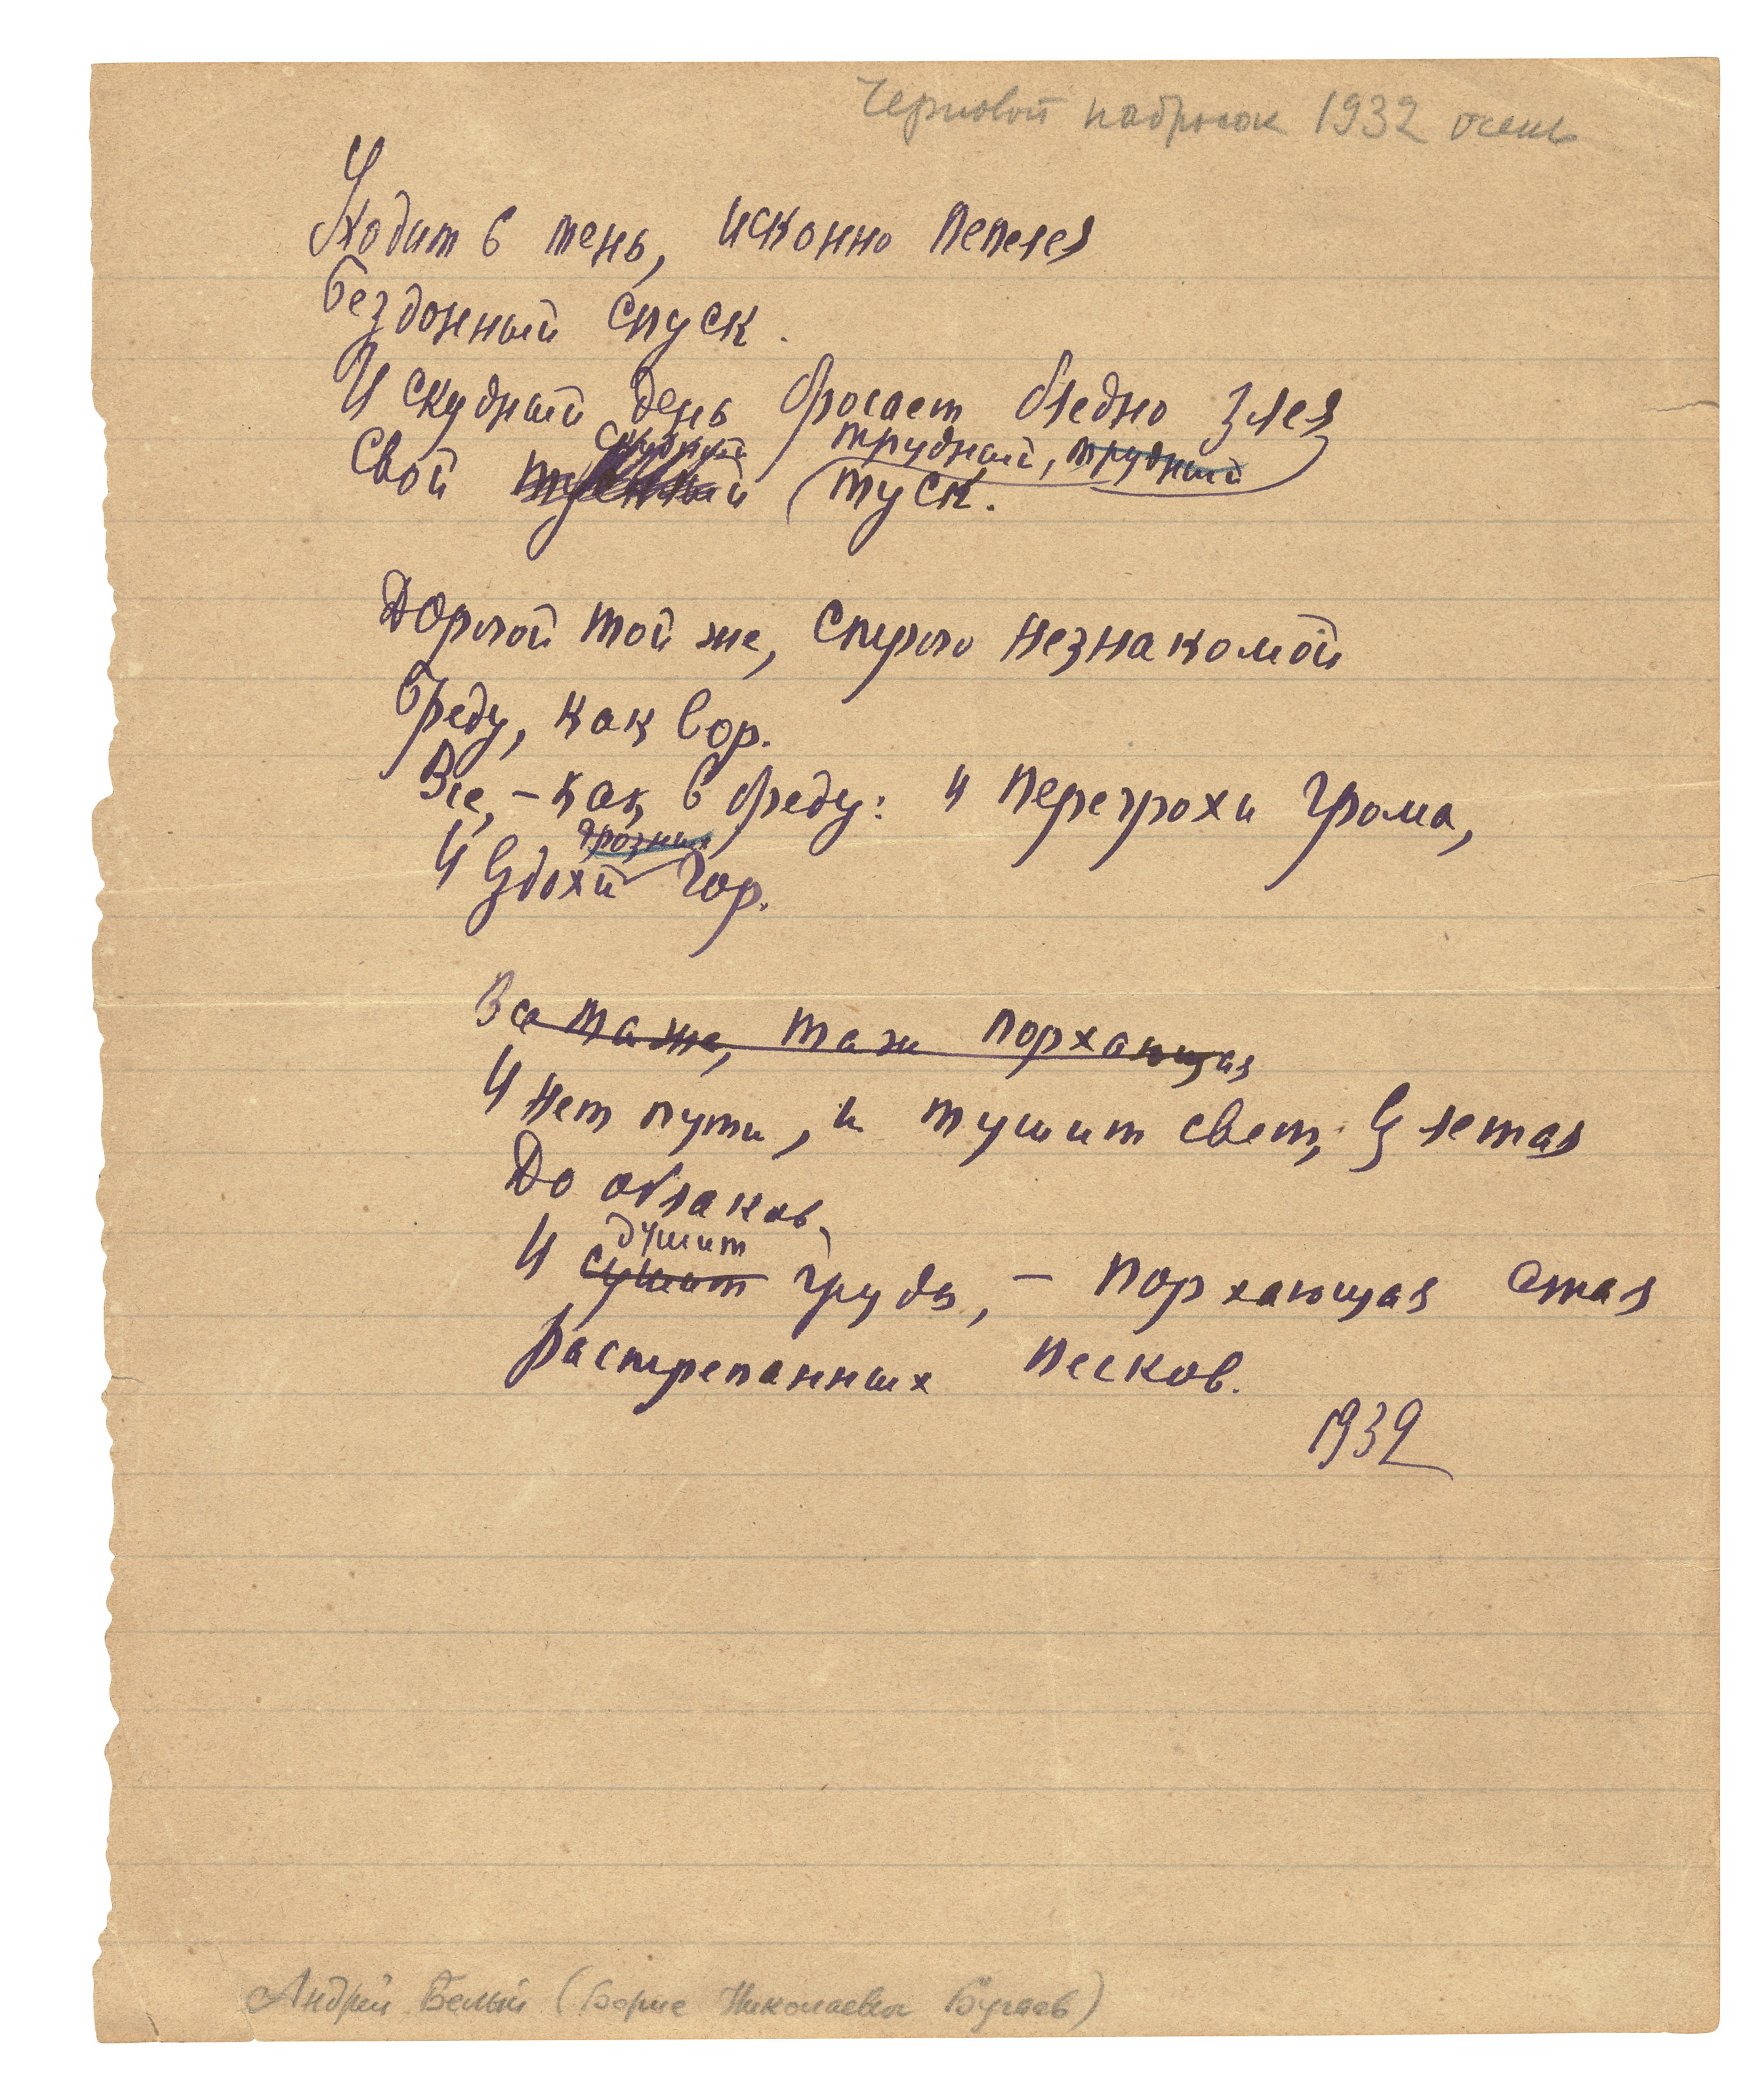 Черновой набросок 1932 осень
Уходит в тень, исконно пепелея
Бездонный спуск.
И скудный день бросает бледно злея
скудный трудный, трудный
Свой тусклый туск.
Дорогой той же, строго незнакомой
Бреду, как вор.
Все, – как в бреду: и перегрохи грома,
грозных
И вздохи гор.
Все та же, та ж порхающая
И нет пути, и тушит свет, взлетая
До облаков,
душит
И сушит грудь, – порхающая стая
Растрепанных песков.
1932
Андрей Белый (Борис Николаевич Бугаев)